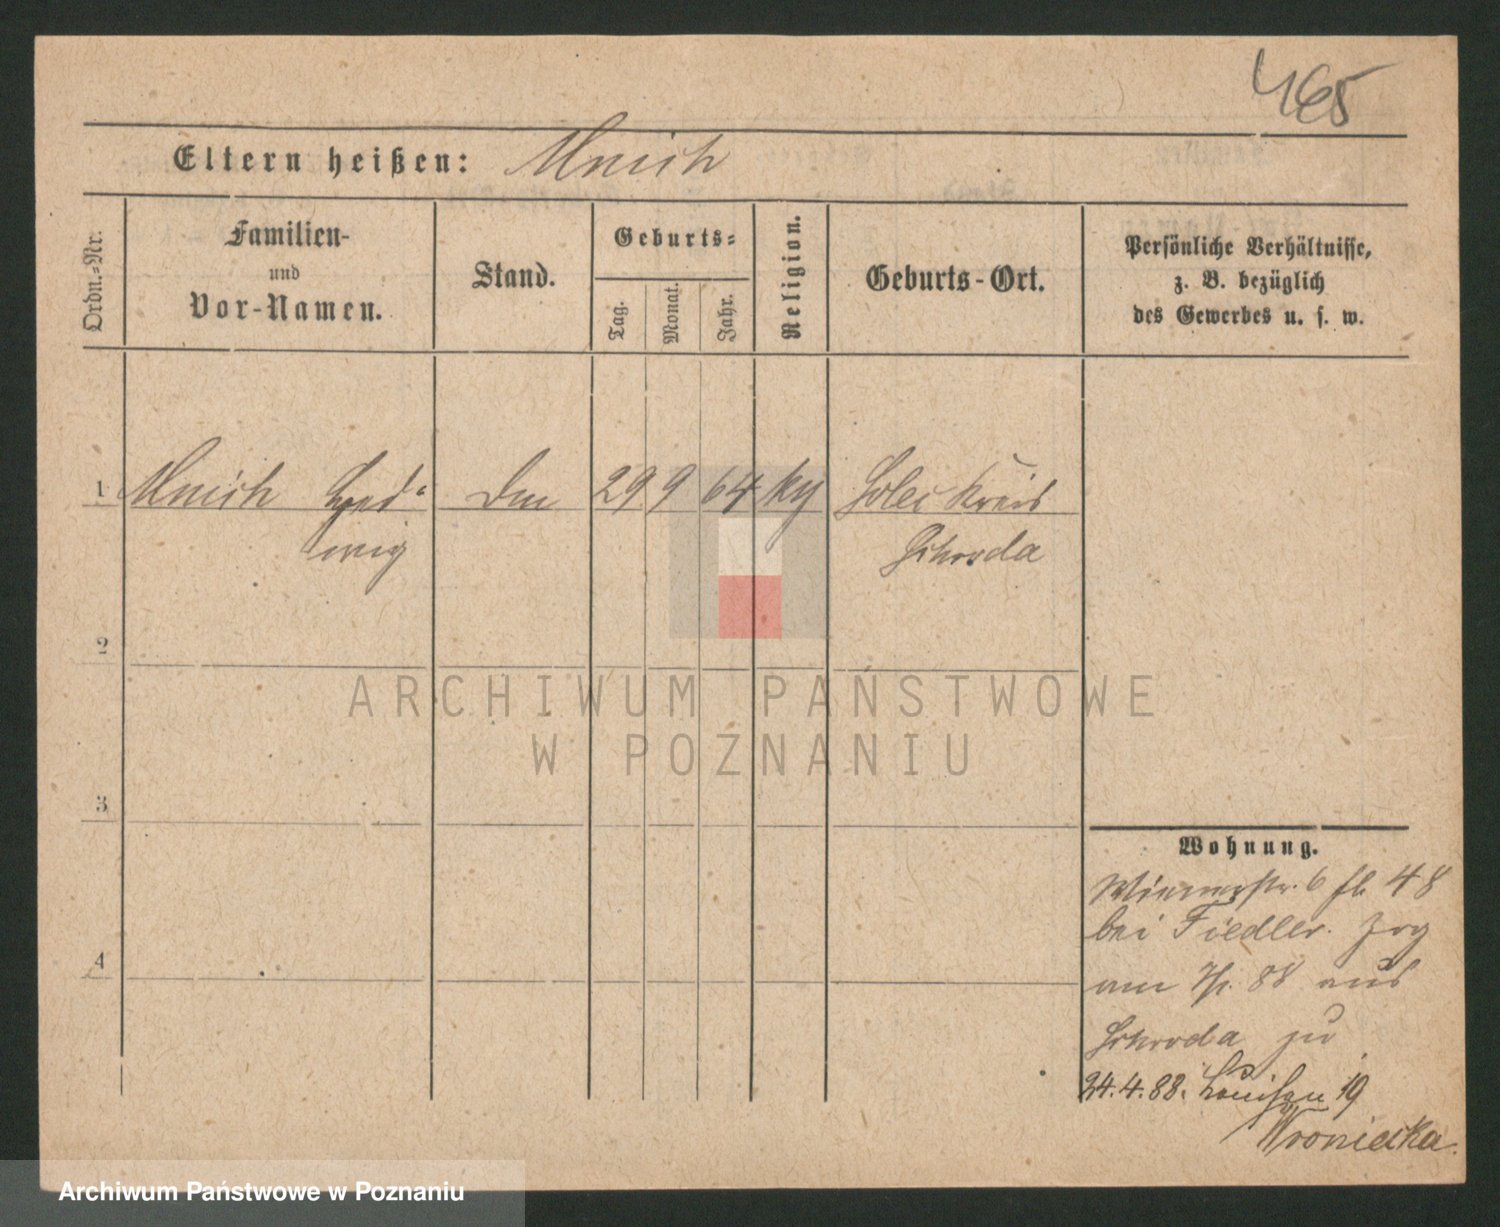 465
Eltern heißen: Mnich
Ordn.-Nr.
Familien-
und
Vor-Namen.
Stand.
Geburts-
Tag.
Monat.
Jahr.
Religion.
Geburts-Ort.
Persönliche Verhältnisse,
z. B. bezüglich
des Gewerbes u. s. w.
1 Mnich Hed- 29 9 64 Kreis
wig Schroda
2
3
4
Wohnung.
Wienerstr. 6 48
bei Fiedler. Zug
am 88 aus
Schroda zu
24.4.88. Louisen 19
Wroniecka
ARCHIWUM PAŃSTWOWE
W POZNANIU
Archiwum Państwowe w Poznaniu